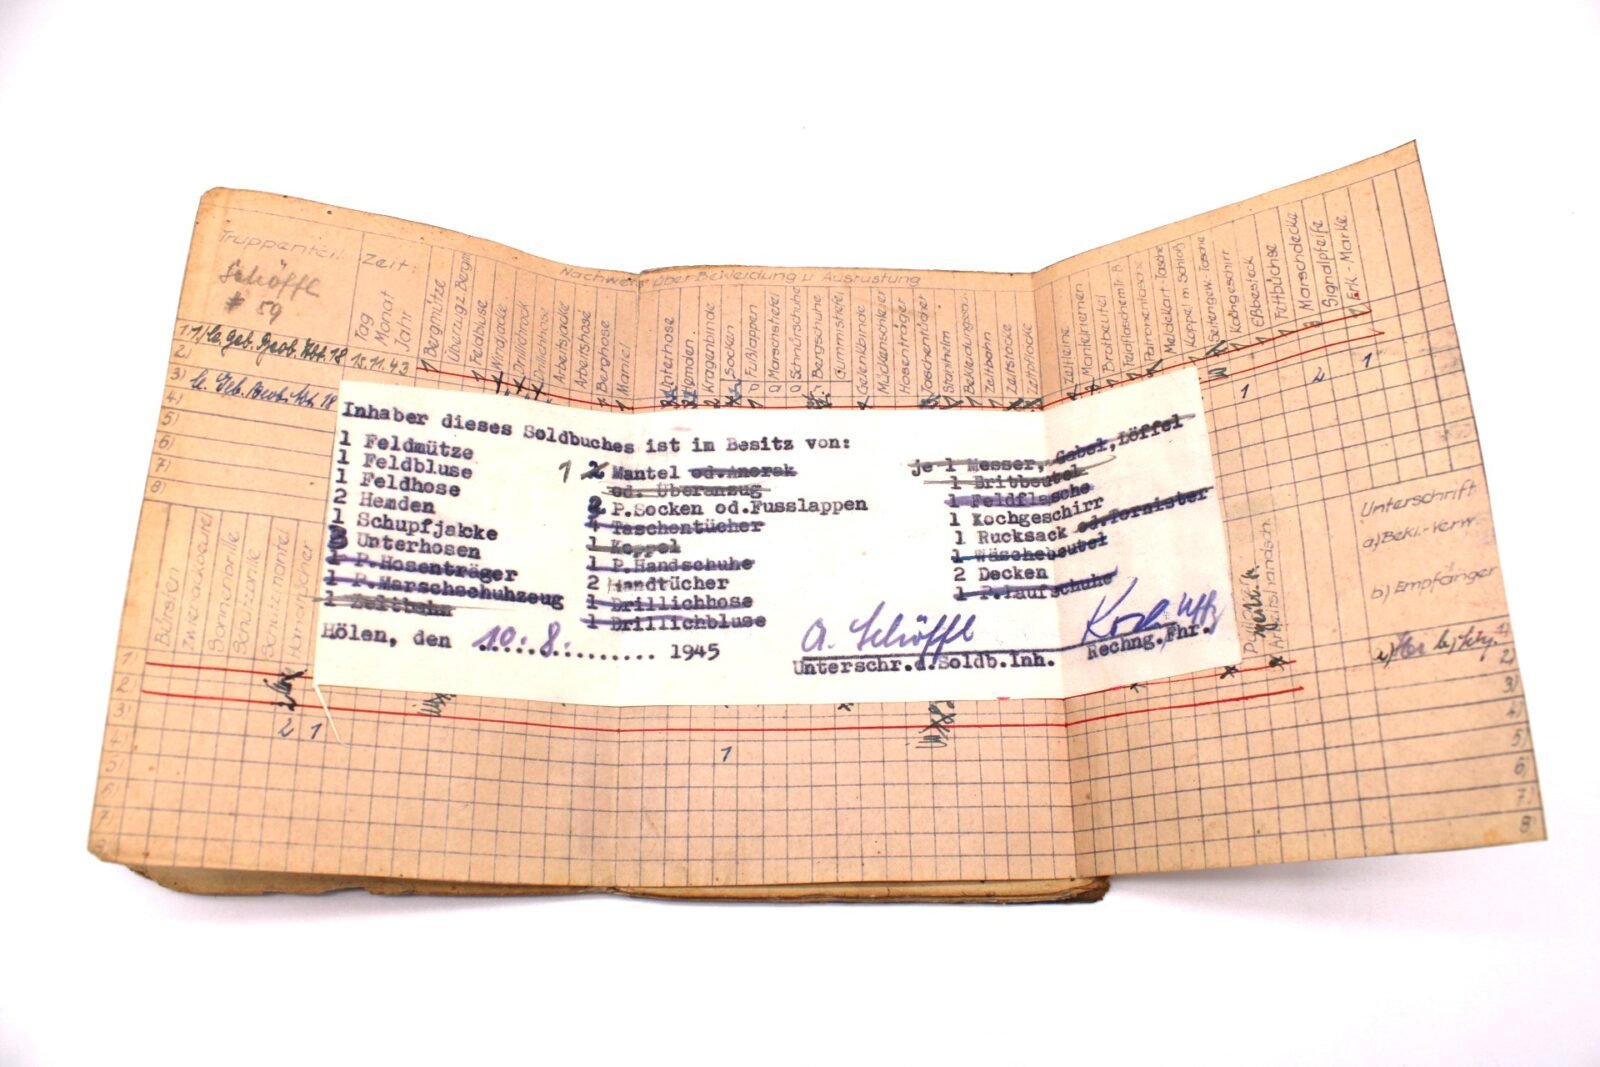 Nachweis über Bekleidung u Ausrüstung
Truppenteil:
Zeit:
Tag
Monat
Jahr
Schöffl
# 59
15.11.43
Bergmütze
Überzug z. Bergm
Feldbluse
Windjacke
Drillichrock
Drillichhose
Arbeitsjacke
Arbeitshose
Berghose
Mantel
Unterhose
Hemden
Kragenbinde
Socken
Fußlappen
Marschstiefel
Schnürschuhe
Bergschuhe
Gummistiefel
Gelenkbinde
Mückenschleier
Hosenträger
Taschentücher
Stahlhelm
Bekleidungssack
Zeltbahn
Zeltstöcke
Zeltpflöcke
Zeltleine
Mantelriemen
Brotbeutel
Feldflasche m. B.
Patronentasche
Meldekart.-Tasche
Koppel m. Schloß
Seitengew.-Tasche
Kochgeschirr
Eßbesteck
Fettbüchse
Marschdecke
Signalpfeife
Erk.-Marke
Inhaber dieses Soldbuches ist im Besitz von:
1 Feldmütze
1 Feldbluse
1 Feldhose
2 Hemden
1 Schupfjalcke
3 Unterhosen
1 P.Hosenträger
1 P.Marschschuhzeug
1 Zeltbahn
1 2 Mantel od.Anorak
od. Überanzug
2 P.Socken od.Fusslappen
4 Taschentücher
1 Koppel
1 P.Handschuhe
2 Handtücher
1 Drillichhose
1 Drillichbluse
je 1 Messer, Gabel, Löffel
1 Britbeutel
1 Feldflasche
1 Kochgeschirr
1 Rucksack od.Tornister
1 Wäschebeutel
2 Decken
1 P.Laufschuhe
Hölen, den 10.8. 1945
A. Schöffl
Unterschr.d.Soldb.Inh.
Rechng.Fhr.
Bürsten
Schutzbrille
Schutzmantel
Handtücher
Arbeitshandsch.
Unterschrift
a) Bekl.-Verw.
b) Empfänger
1)
2)
3)
4)
5)
6)
7)
8)
2 1
1
1
2
1